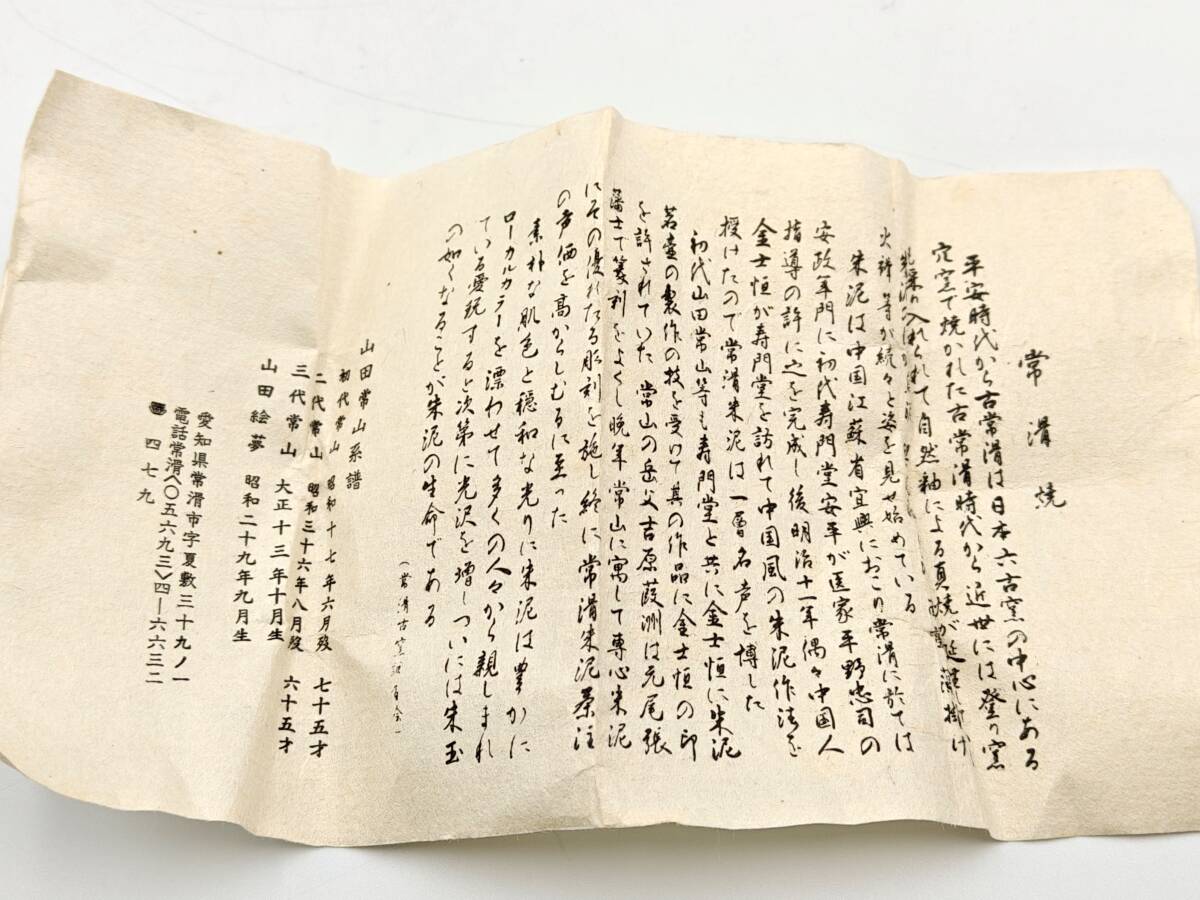 常滑焼
平安時代から古常滑は日本六古窯の中心にある
穴窯で焼かれた古常滑時代から近世には登り窯
入れられて自然釉による真焼が 掛け
火 等が続々と姿を見せ始めている
朱泥は中国江蘇省宜興におこり常滑に於ては
安政年門に初代寿門堂安平が医家平野忠司の
指導の許に之を完成し後明治十一年偶々中国人
金士恒が寿門堂を訪れて中国風の朱泥作法を
授けたので常滑朱泥は一層名声を博した
初代山田常山等も寿門堂と共に金士恒に朱泥
茗壷の製作の技を受けて其の作品に金士恒の印
を許されていた 常山の岳父吉原葭洲は元尾張
藩士で篆刻をよくし晩年常山に寓して専心朱泥
にその優れたる彫刻を施し終に常滑朱泥茶注
の声価を高からしむるに至った
素朴な肌色と穏和な光りに朱泥は豊かに
ローカルカラーを漂わせて多くの人々から親しまれ
ている愛玩すると次第に光沢を増しついには朱玉
の如くなることが朱泥の生命である
山田常山系譜
初代常山 昭和十七年六月歿 七十五才
二代常山 昭和三十六年八月歿 六十五才
三代常山 大正十三年十月生
山田絵夢 昭和二十九年九月生
愛知県常滑市字夏敷三十九ノ一
電話常滑〈〇五六九三〉四―六六三二
四七九